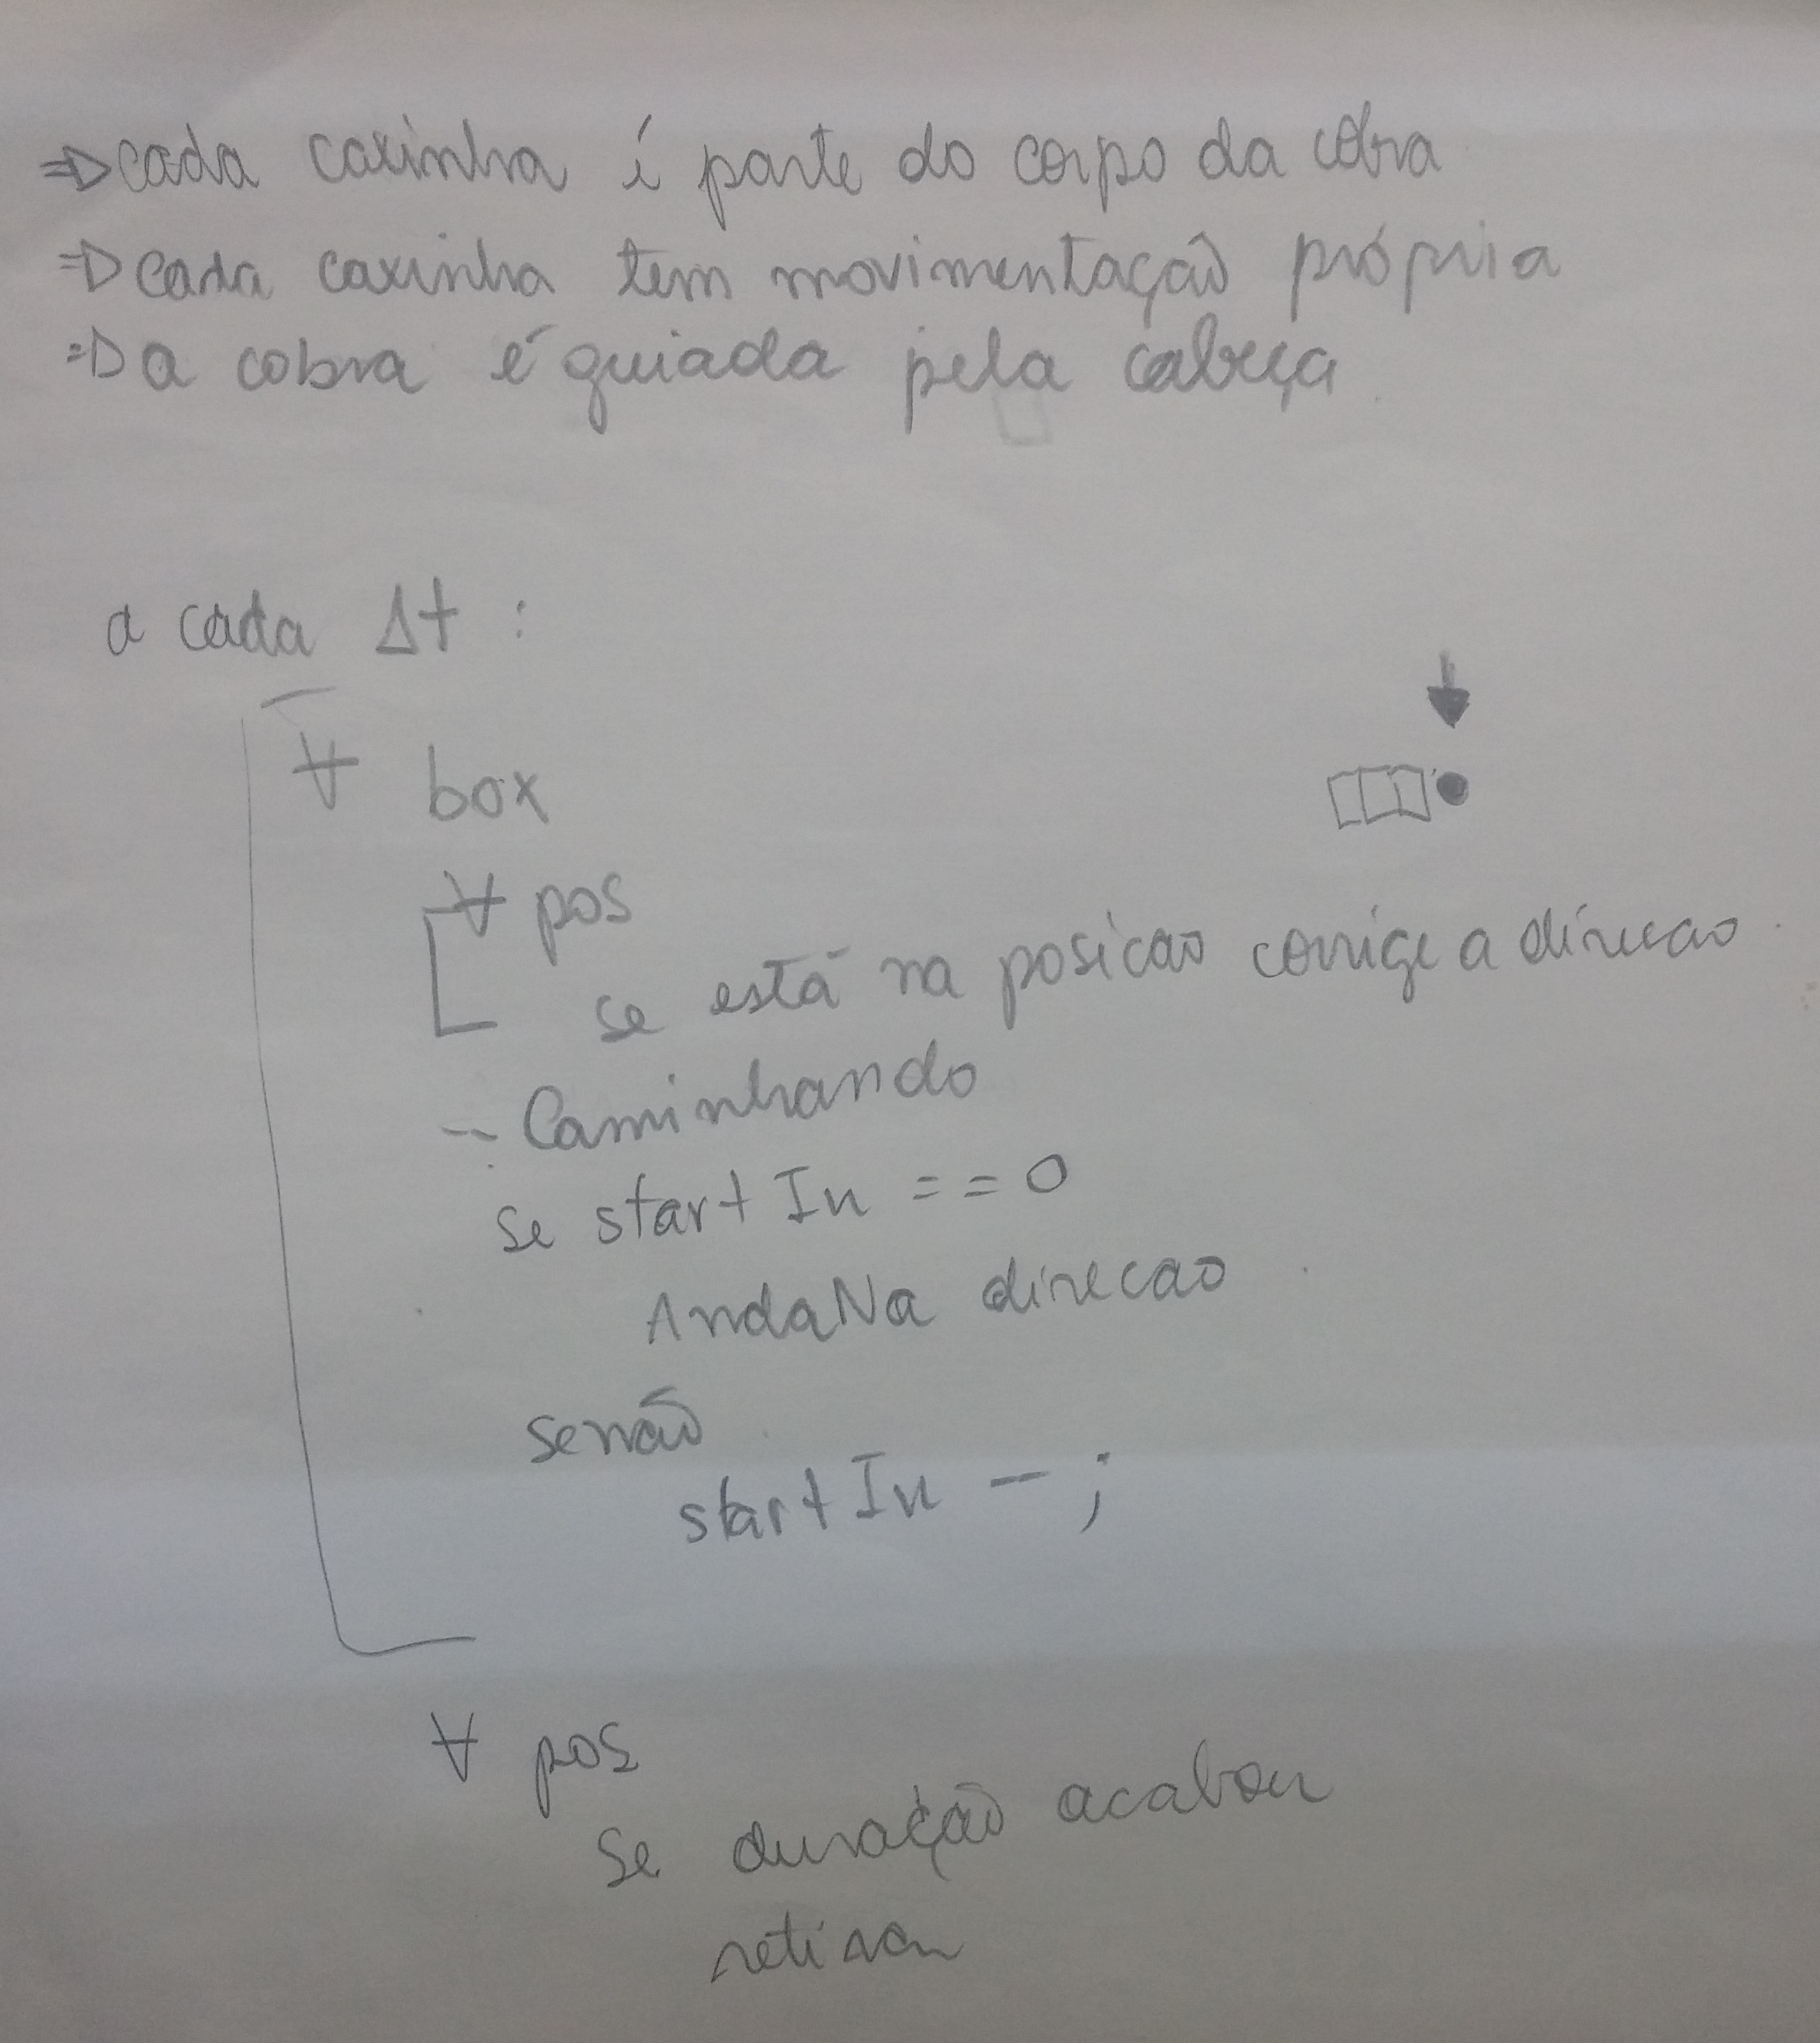 ⇒ cada caxinha é parte do corpo da cobra
⇒ cada caxinha tem movimentação própria
⇒ a cobra é guiada pela cabeça
a cada Δt :
∀ box
∀ pos
se está na posicao corrige a direcao
-- Caminhando
se startIn == 0
AndaNa direcao
senão
startIn -- ;
∀ pos
se duração acabou
retirar